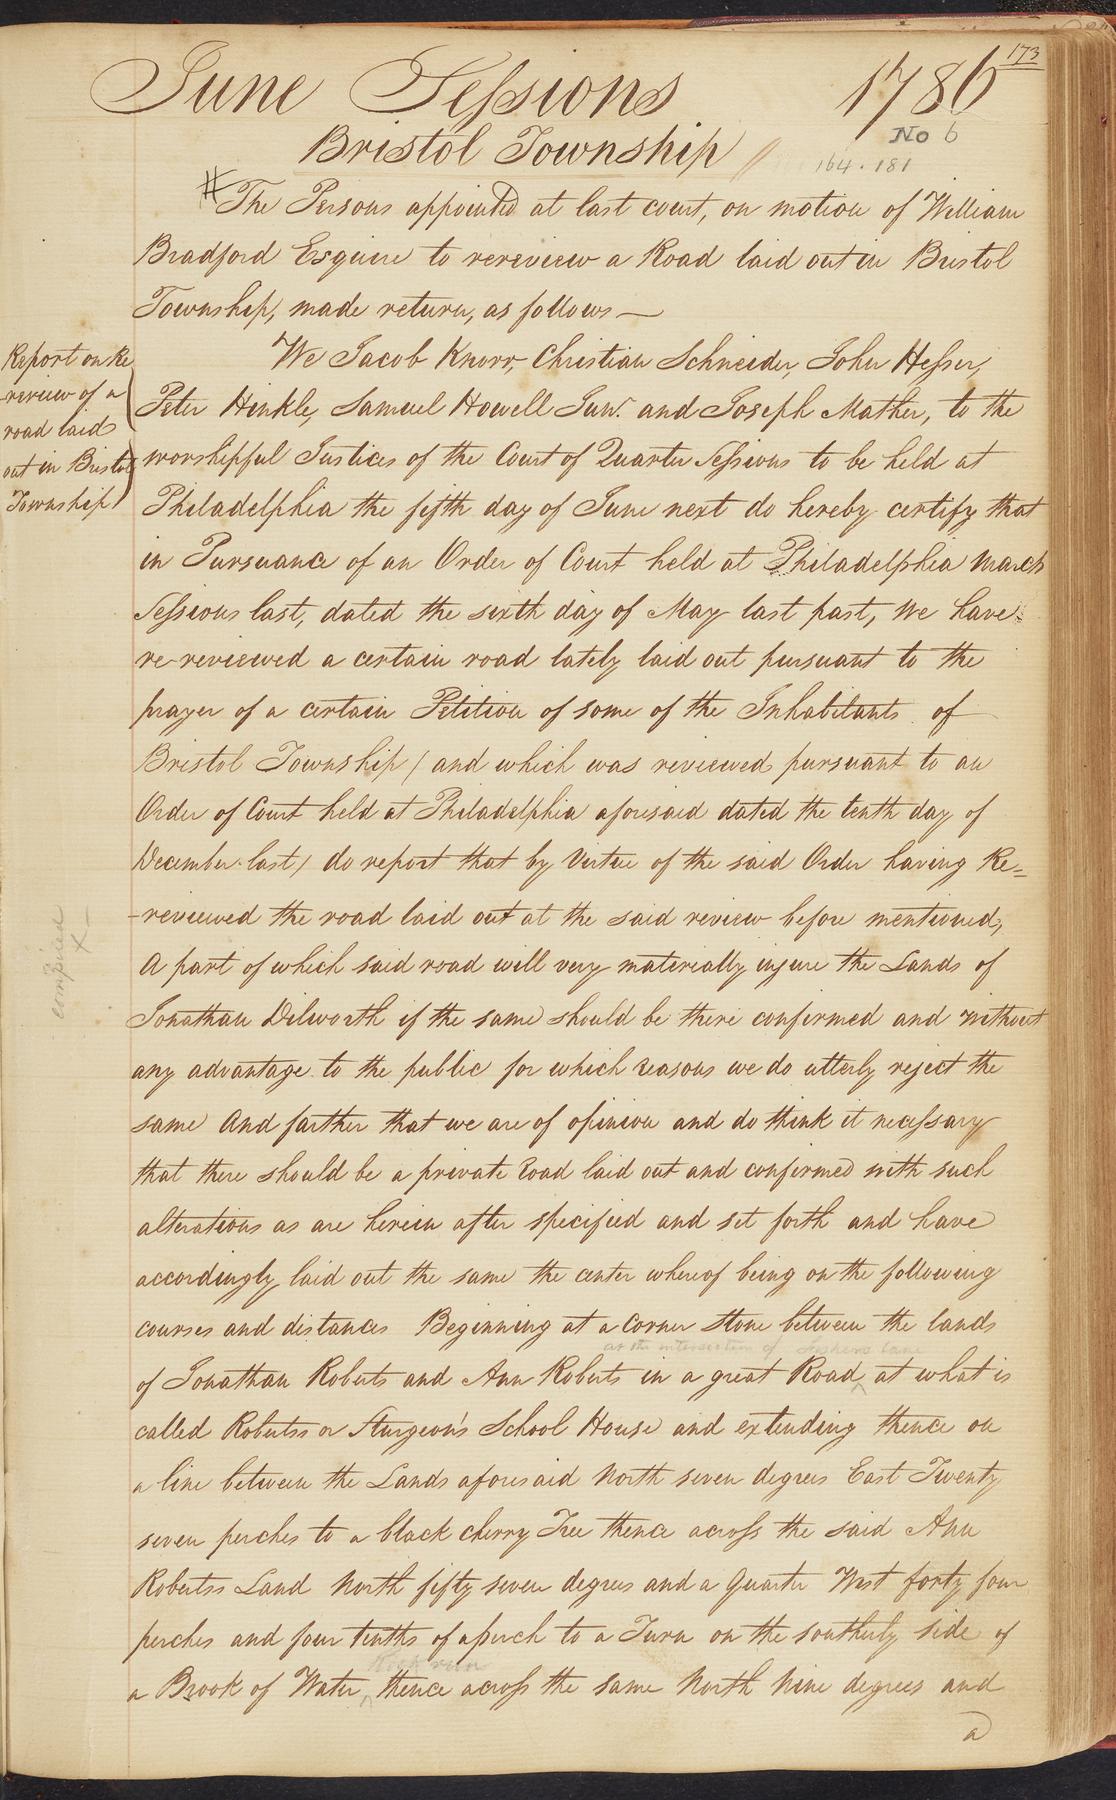 173
June Sessions 1786
No 6
Bristol Township //
164 . 181
# The Persons appointed at last court, on motion of William
Bradford Esquire to rereview a Road laid out in Bristol
Township, made return, as follows —
Report on Re
-review of a
road laid
out in Bristol
Township
We Jacob Knorr, Christian Schneider, John Hesser,
Peter Hinkle, Samuel Howell Junr. and Joseph Mather, to the
worshipful Justices of the Court of Quarter Sessions to be held at
Philadelphia the fifth day of June next do hereby certify that
in Pursuance of an Order of Court held at Philadelphia March
Sessions last, dated the sixth day of May last past, We have
re-reviewed a certain road lately laid out pursuant to the
prayer of a certain Petition of some of the Inhabitants of
Bristol Township / and which was reviewed pursuant to an
Order of Court held at Philadelphia aforesaid dated the tenth day of
December last / do report that by Virtue of the said Order having Re=
-reviewed the road laid out at the said review before mentioned,
A part of which said road will very materially injure the Lands of
Jonathan Dilworth if the same should be there confirmed and without
any advantage to the public for which reasons we do utterly reject the
same And farther that we are of opinion and do think it necessary
that there should be a private Road laid out and confirmed with such
alterations as are herein after specified and set forth and have
accordingly laid out the same the center whereof being on the following
courses and distances Beginning at a Corner Stone between the lands
at the intersection of Fishers Lane
of Jonathan Roberts and Ann Roberts in a great Road ^ at what is
called Robertss or Sturgeon's School House and extending thence on
a line between the Lands aforesaid North seven degrees East Twenty
seven perches to a black cherry Tree thence across the said Ann
Robertss Land North fifty seven degrees and a Quarter West forty four
perches and four tenths of a perch to a Turn on the southerly side of
Rock run
a Brook of Water ^ thence across the same North Nine degrees and
a
compared
x